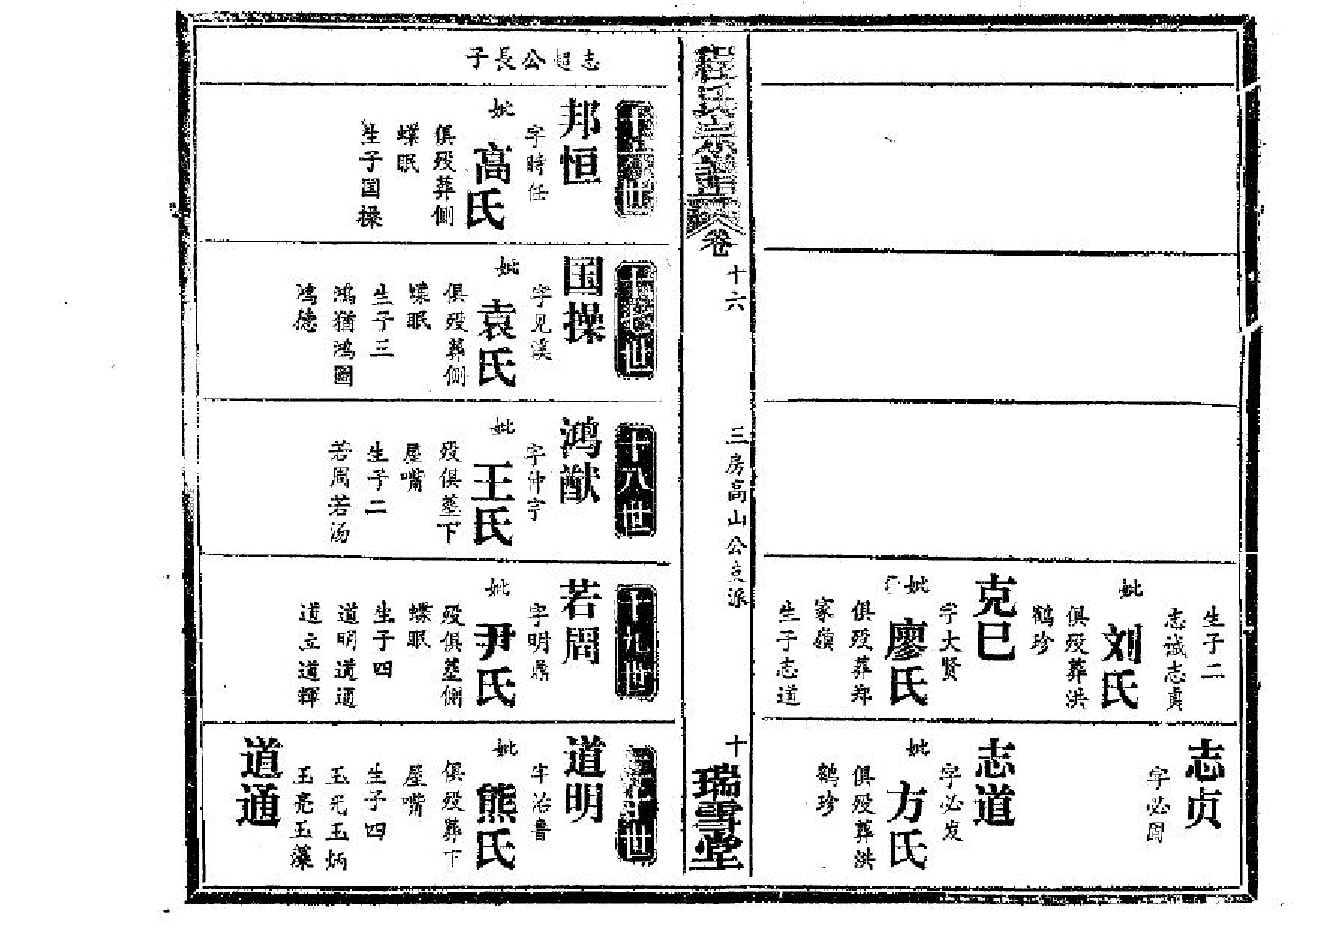 生子二
志诚志贞
妣
刘氏
俱殁葬洪
鹤珍
克巳
字大贤
妣
廖氏
俱殁葬郑
家嶺
生子志道
志贞
字必固
志道
字必发
妣
方氏
俱殁葬洪
鹤珍
程氏宗譜
卷
十六
三房高山公支派
十
瑞雪堂
志超公長子
世
邦恒
字時任
妣
高氏
俱殁葬側
蝶眠
生子国操
世
国操
字见漢
妣
袁氏
俱殁葬側
蝶眠
生子三
鸿猶鸿圖
鸿德
十八世
鸿猷
字仲宇
妣
王氏
殁俱塟下
屋嘴
生子二
若周若汤
十九世
若周
字明鼎
妣
尹氏
殁俱塟側
蝶眠
生子四
道明道通
道立道輝
世
道明
字治魯
妣
熊氏
俱殁葬下
屋嘴
生子四
玉光玉炳
玉亮玉藻
道通